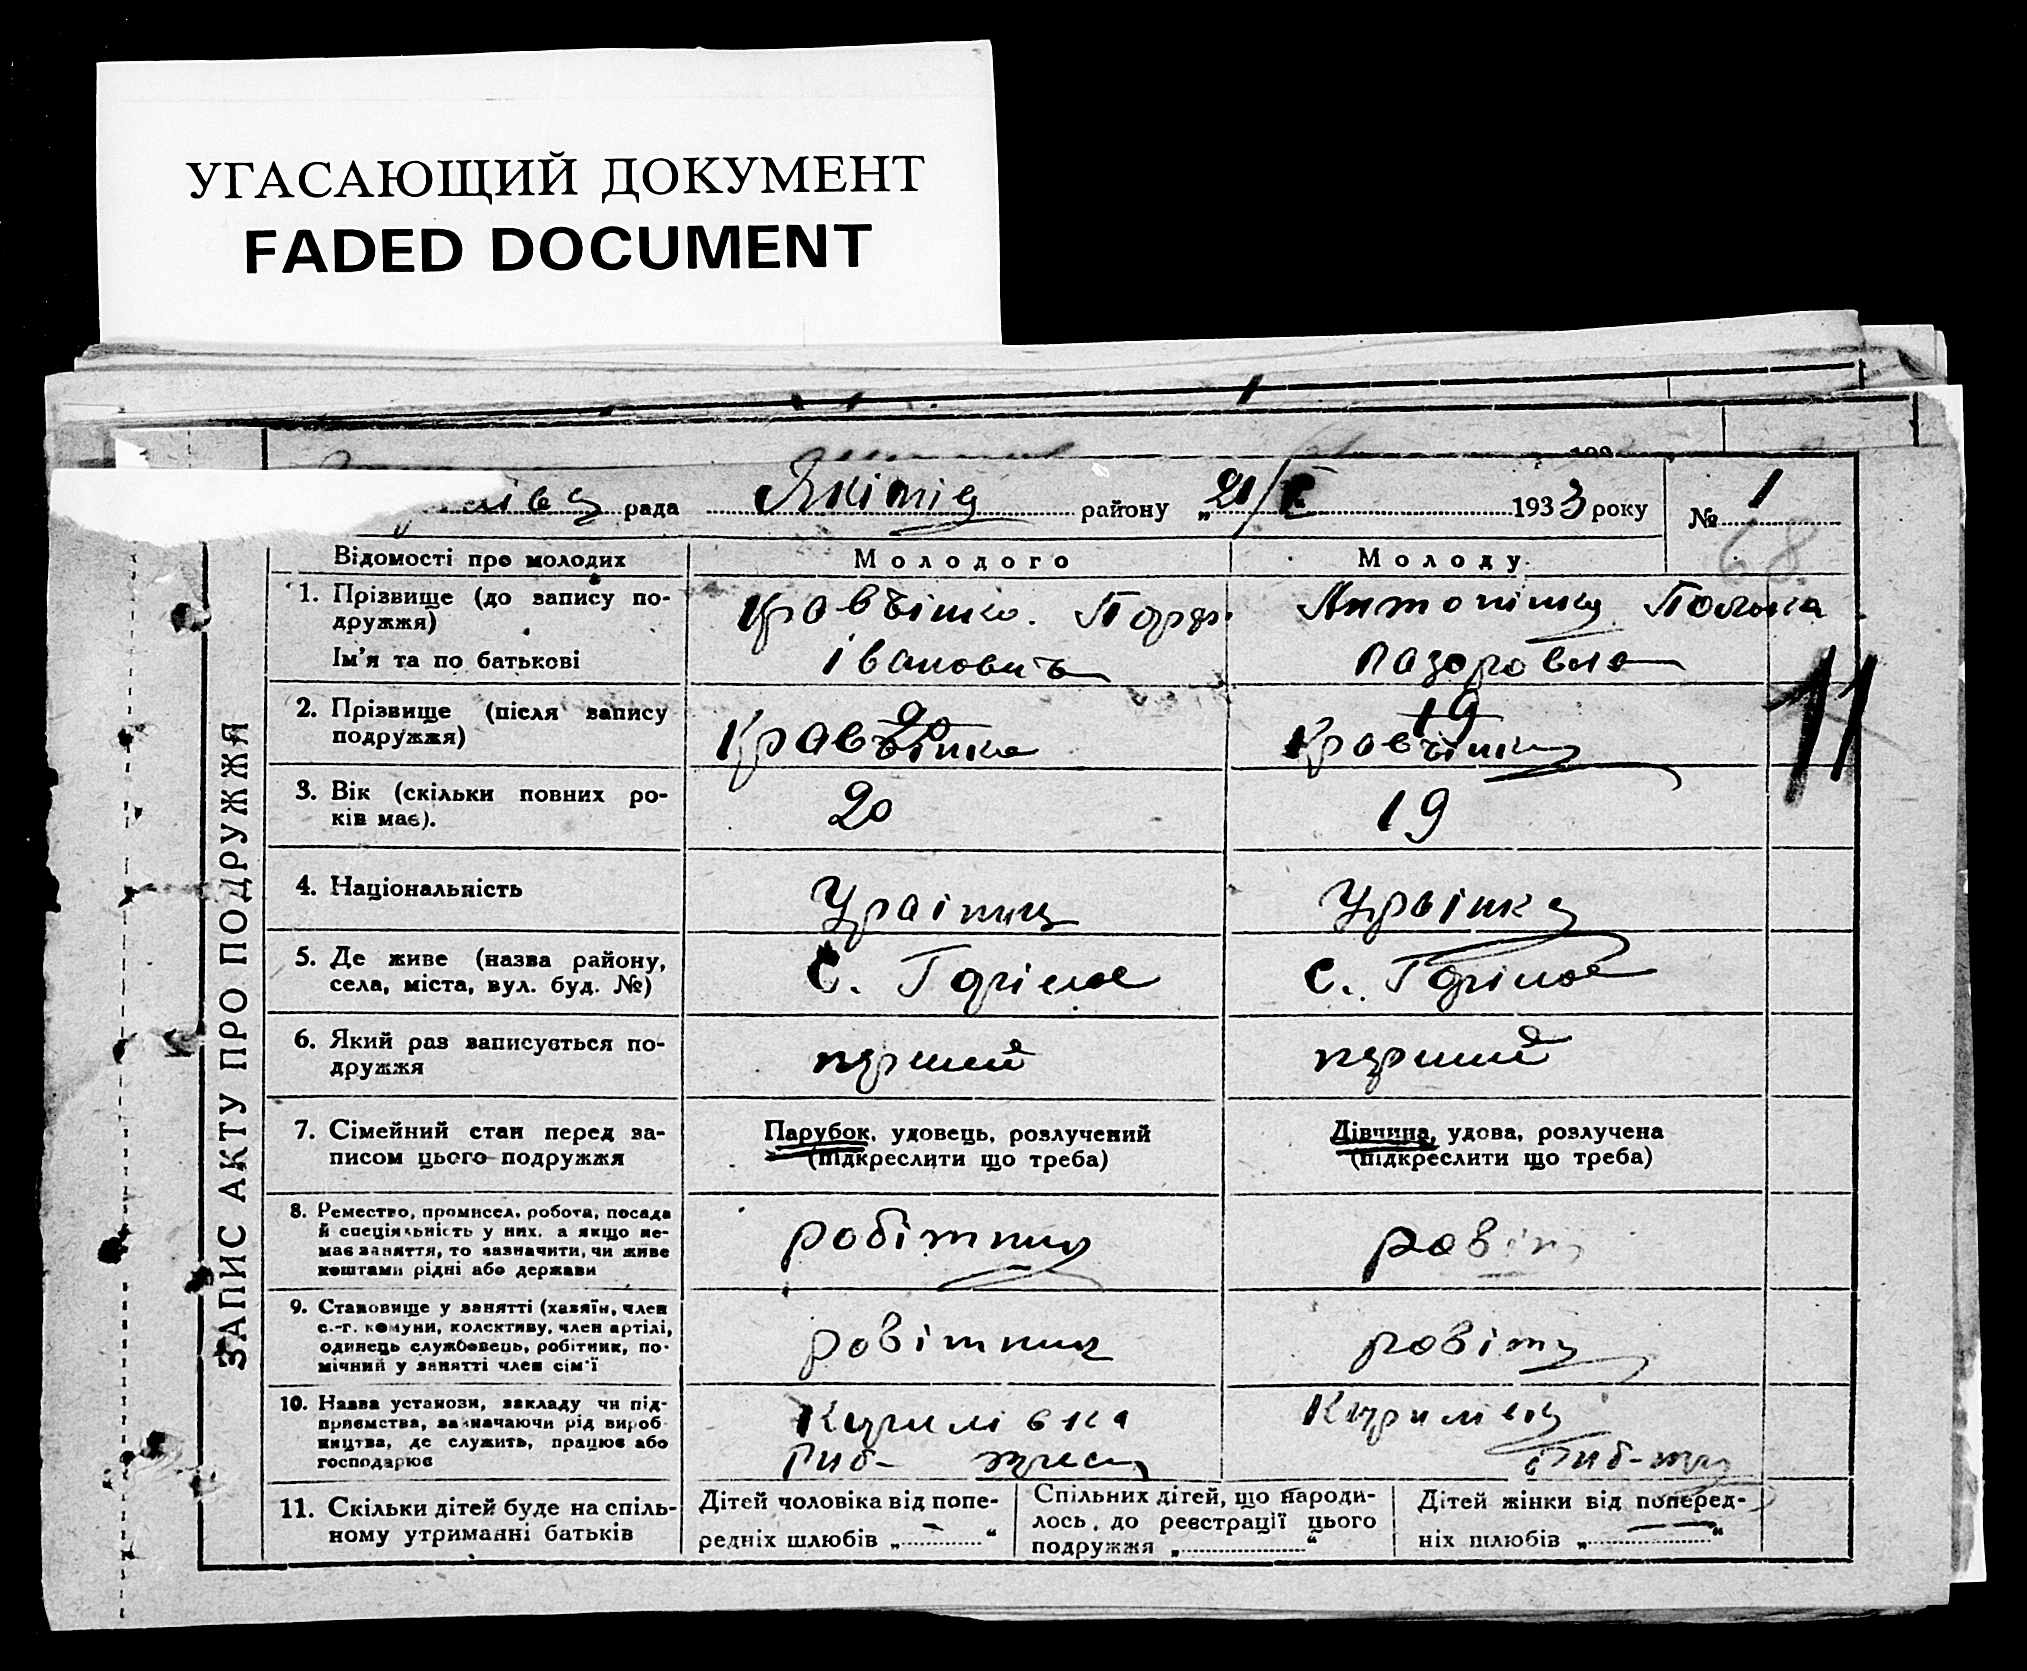 УГАСАЮЩИЙ ДОКУМЕНТ
FADED DOCUMENT
рада Якімів району „21/І 1933 року № 1
68
ЗАПИС АКТУ ПРО ПОДРУЖЖЯ
Відомості про молодих
Молодого
Молоду
1. Прізвище (до запису по-
дружжя)
Ім'я та по батькові
Івановичъ
2. Прізвище (після запису
подружжя)
20
19
3. Вік (скільки повних ро-
ків має).
20
19
11
4. Національність
Украінец
5. Де живе (назва району,
села, міста, вул. буд. №)
с. Горіле
с. Горіле
6. Який раз записується по-
дружжя
перший
перший
7. Сімейний стан перед за-
писом цього подружжя
Парубок, удовець, розлучений
(підкреслити що треба)
Дівчина, удова, розлучена
(підкреслити що треба)
8. Ремество, промисел, робота, посада
й спеціяльність у них, а якщо не-
має заняття, то зазначити, чи живе
коштами рідні або держави
робітник
робіт
9. Становище у занятті (хазяїн, член
с.-г. комуни, колективу, член артілі,
одинець службовець, робітник, по-
мічний у занятті член сім'ї
робітник
робітн
10. Назва установи, закладу чи під-
приємства, зазначаючи рід вироб-
ництва, де служить, працює або
господарює
Кирилівка
Риб- трест
Кирилівка
Риб-тр
11. Скільки дітей буде на спіль-
ному утриманні батьків
Дітей чоловіка від попе-
редніх шлюбів „—“
Спільних дітей, що народи-
лось, до реєстрації цього
подружжя „ “
Дітей жінки від поперед-
ніх шлюбів „—“